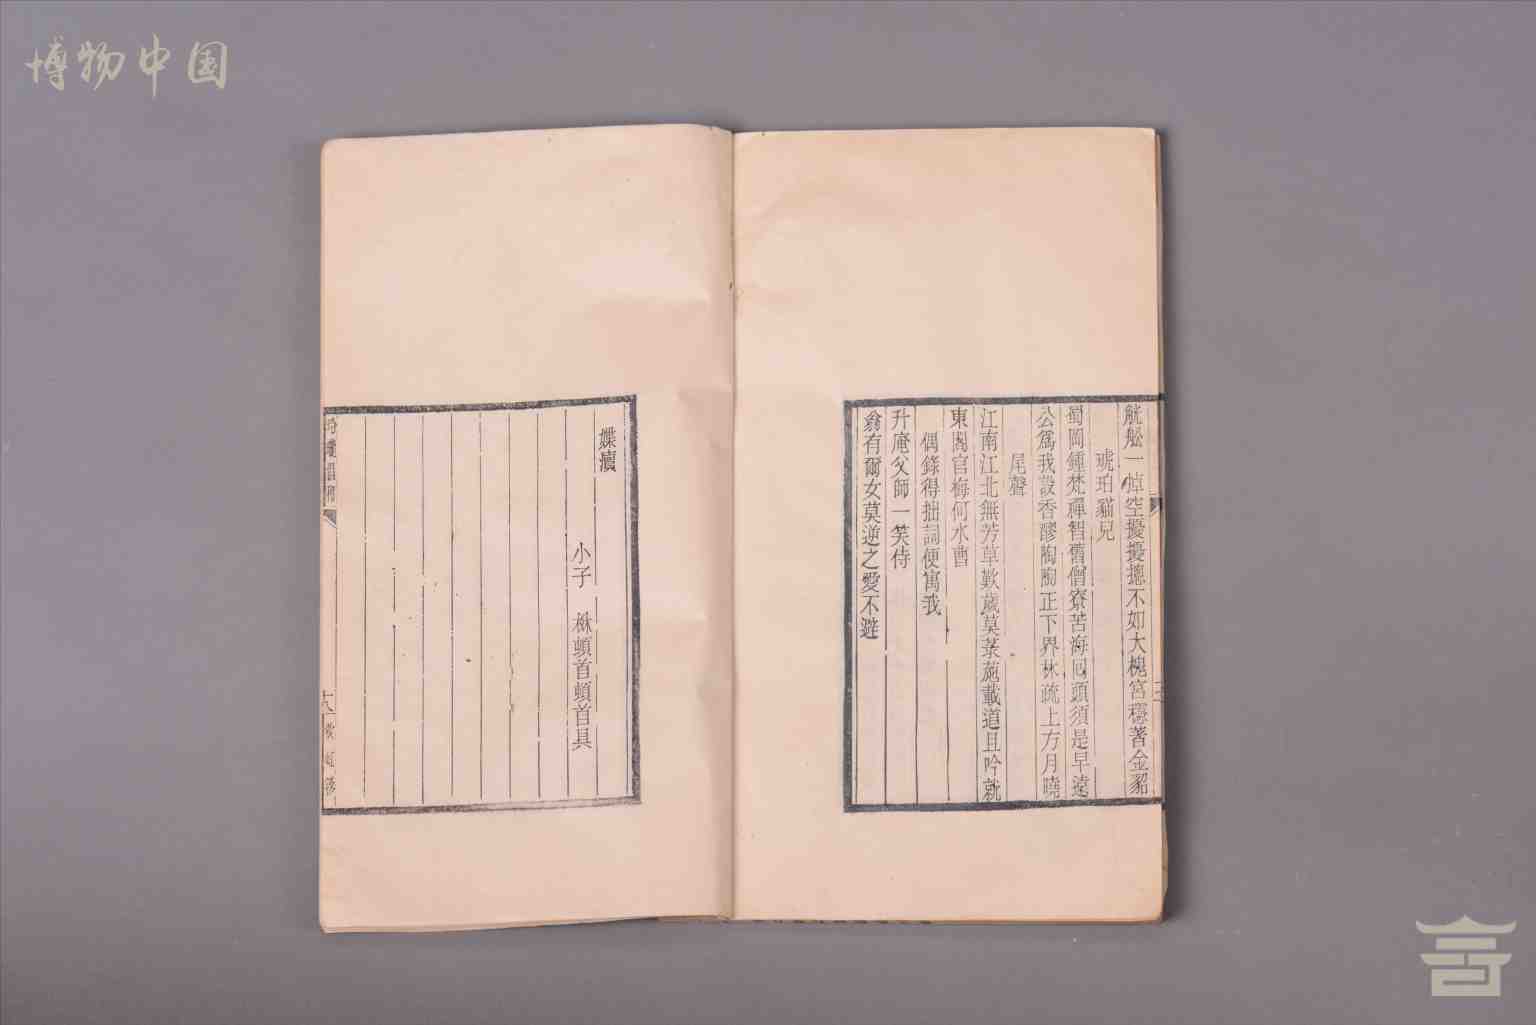 博物中国
觥船一掉空擾擾摠不如大槐宮穩著金貂
琥珀貓兒
蜀岡鍾梵禪智舊僧寮苦海回頭須是早遠
公爲我設香醪陶陶正下界秋疏上方月曉
尾聲
江南江北無芳草歎歲莫菉葹載道且吟就
東閣官梅何水曹
偶錄得拙詞便寓我
升庵父師一笑侍
翁有爾女莫逆之愛不避
媟瀆
小子 楙頓首頓首具